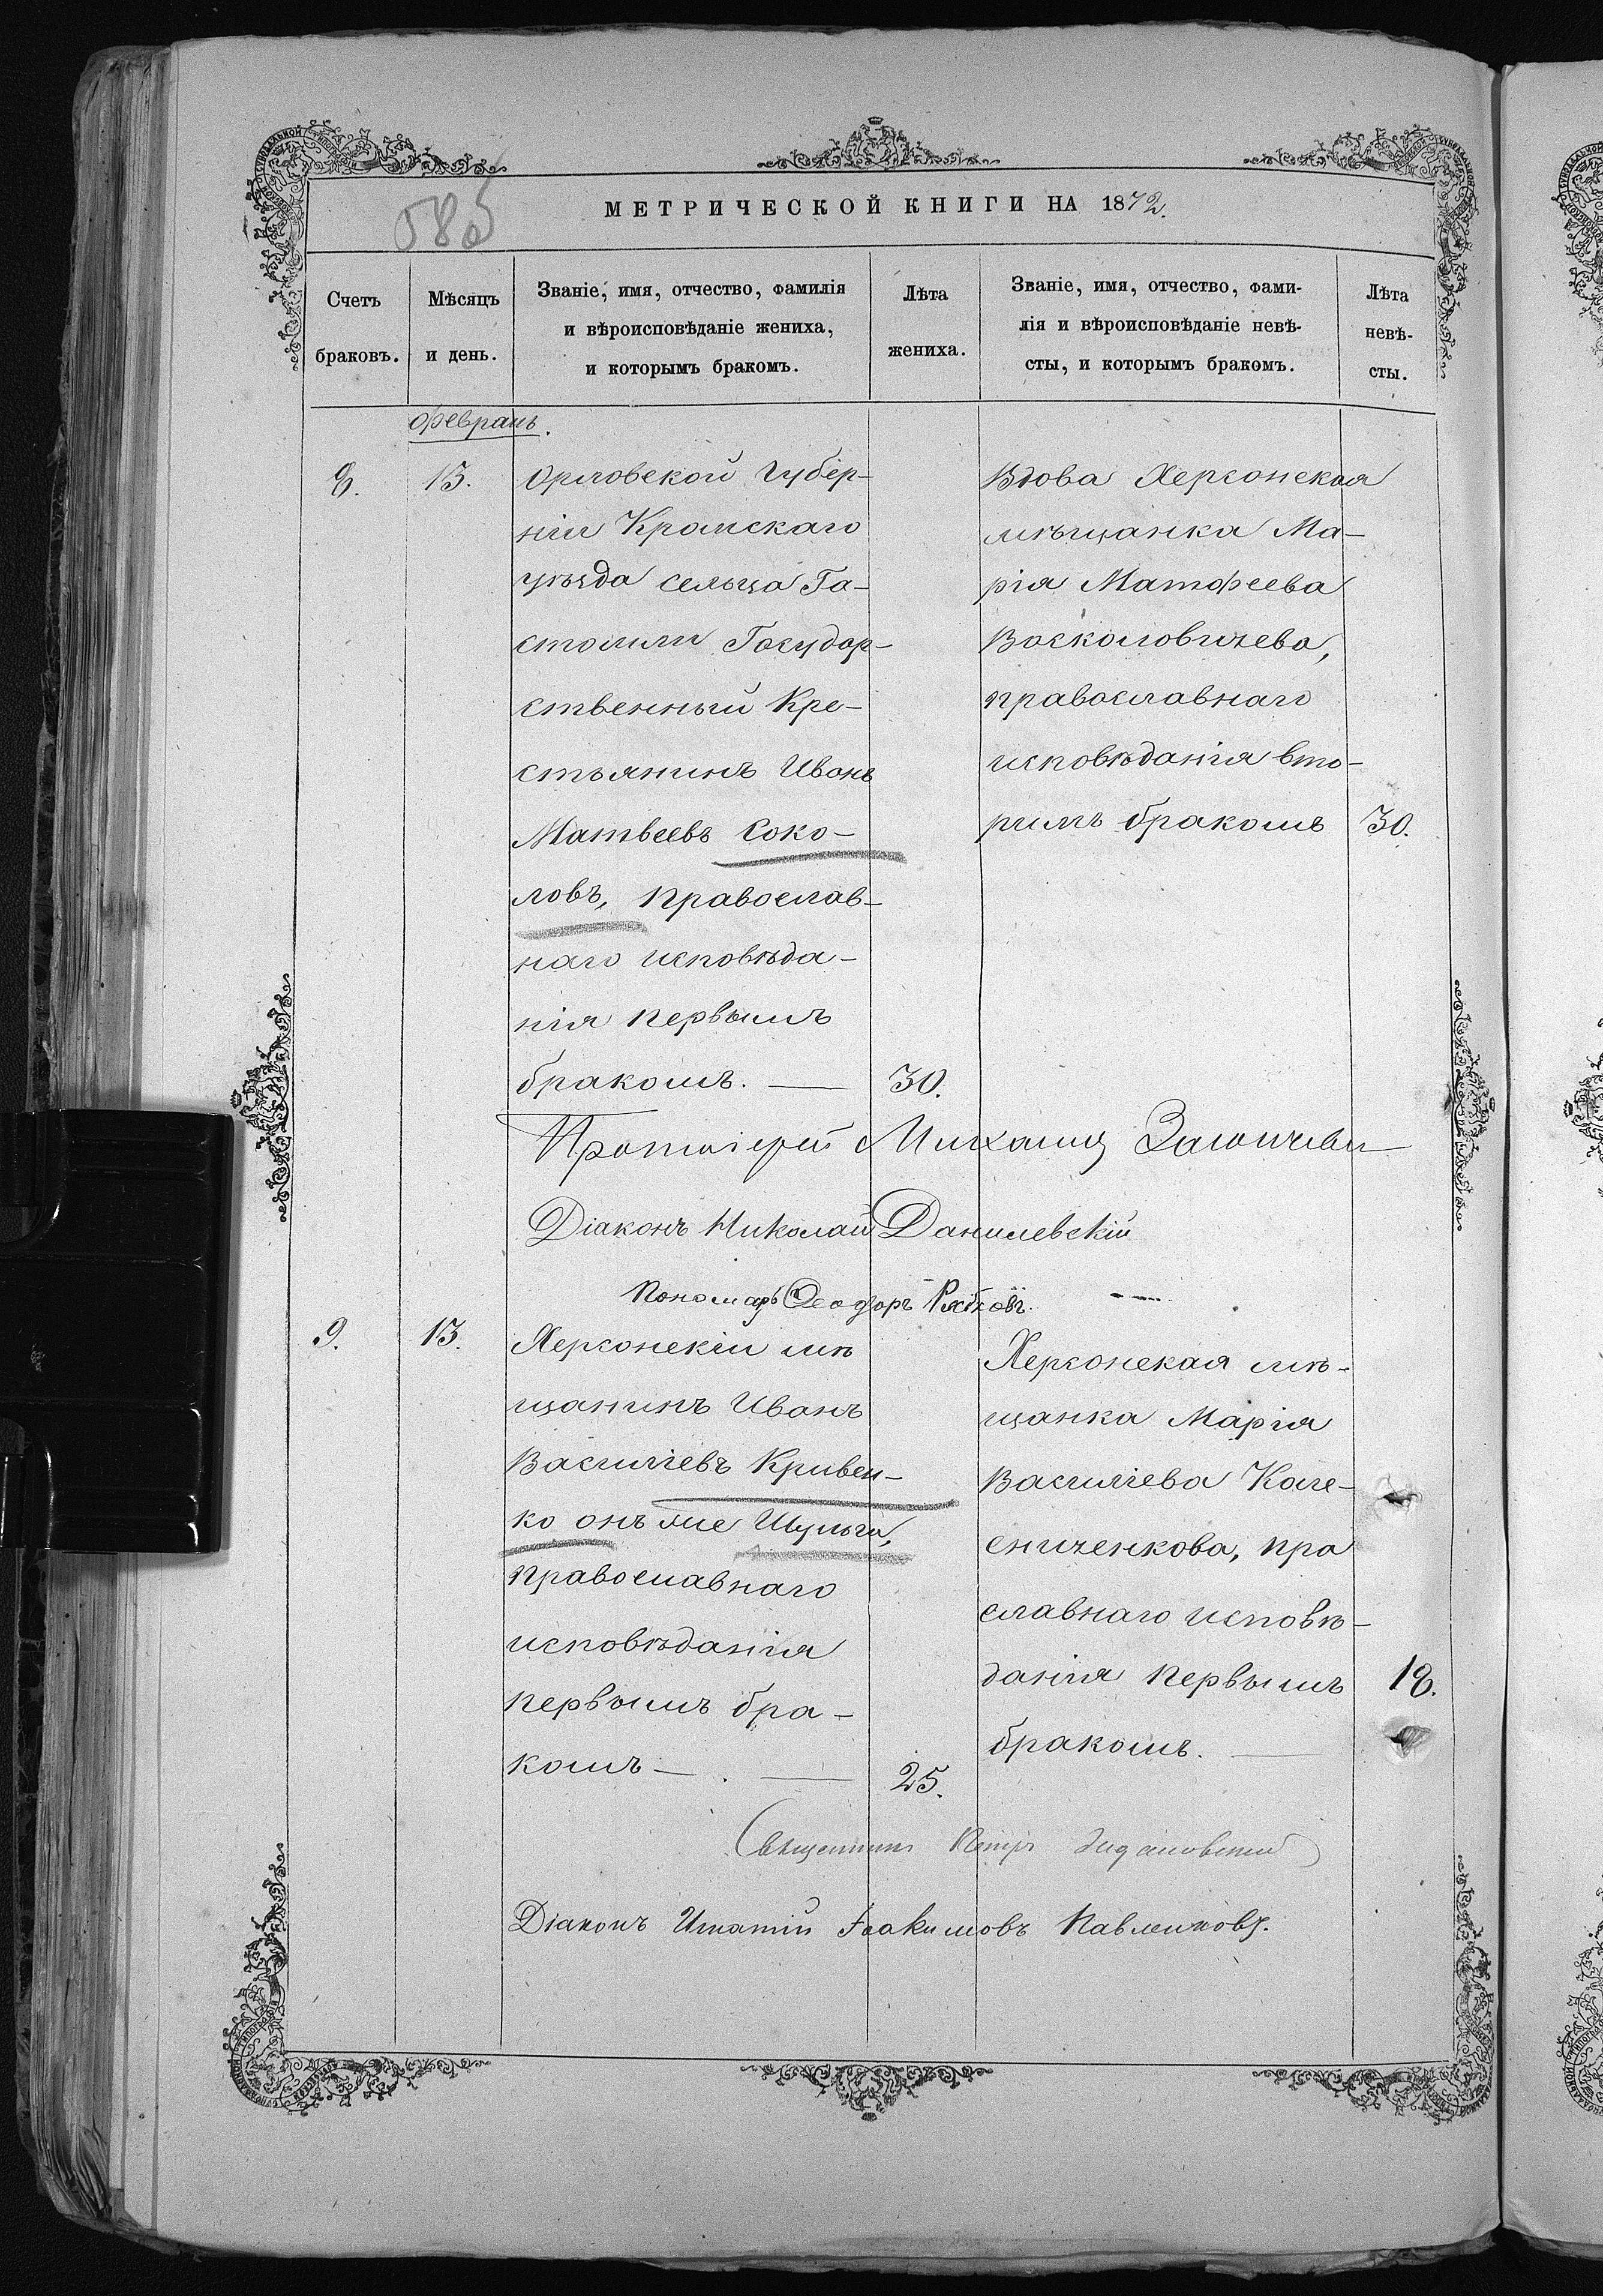 585
МЕТРИЧЕСКОЙ КНИГИ НА 1872.
Счетъ браковъ.
Мѣсяцъ и день.
Званіе, имя, отчество, фамилія
и вѣроисповѣданіе жениха,
и которымъ бракомъ.
Лѣта жениха.
Званіе, имя, отчество, фами-
лія и вѣроисповѣданіе невѣ-
сты, и которымъ бракомъ.
Лѣта
невѣ-
сты.
Февраль.
8. 13.
Орловской Губер-
ніи Кромскаго
уѣзда сельца Га-
стомли Государ-
ственный Кре-
стьянинъ Иванъ
Матвеевъ Соко-
ловъ, православ-
наго исповѣда-
нія первымъ
бракомъ. — 30.
Вдова Херсонская
мѣщанка Ма-
рія Матфеева
Восколовичева,
православнаго
исповѣданія вто-
римъ бракомъ 30.
Протоіерей Михаилъ
Діаконъ Николай Данилевскій
Пономарь Ѳеодоръ
9. 13.
Херсонскій мѣ
щанинъ Иванъ
Василіевъ Кривен-
ко онъ же Шульга,
православнаго
исповѣданія
первымъ бра-
комъ — . — 25.
Херсонская мѣ-
щанка Марія
Василіева Коле-
сниченкова, пра
славнаго исповѣ-
данія первымъ 18.
бракомъ. —
Священникъ Петръ
Діаконъ Игнатій Іоакимовъ Павленковъ.